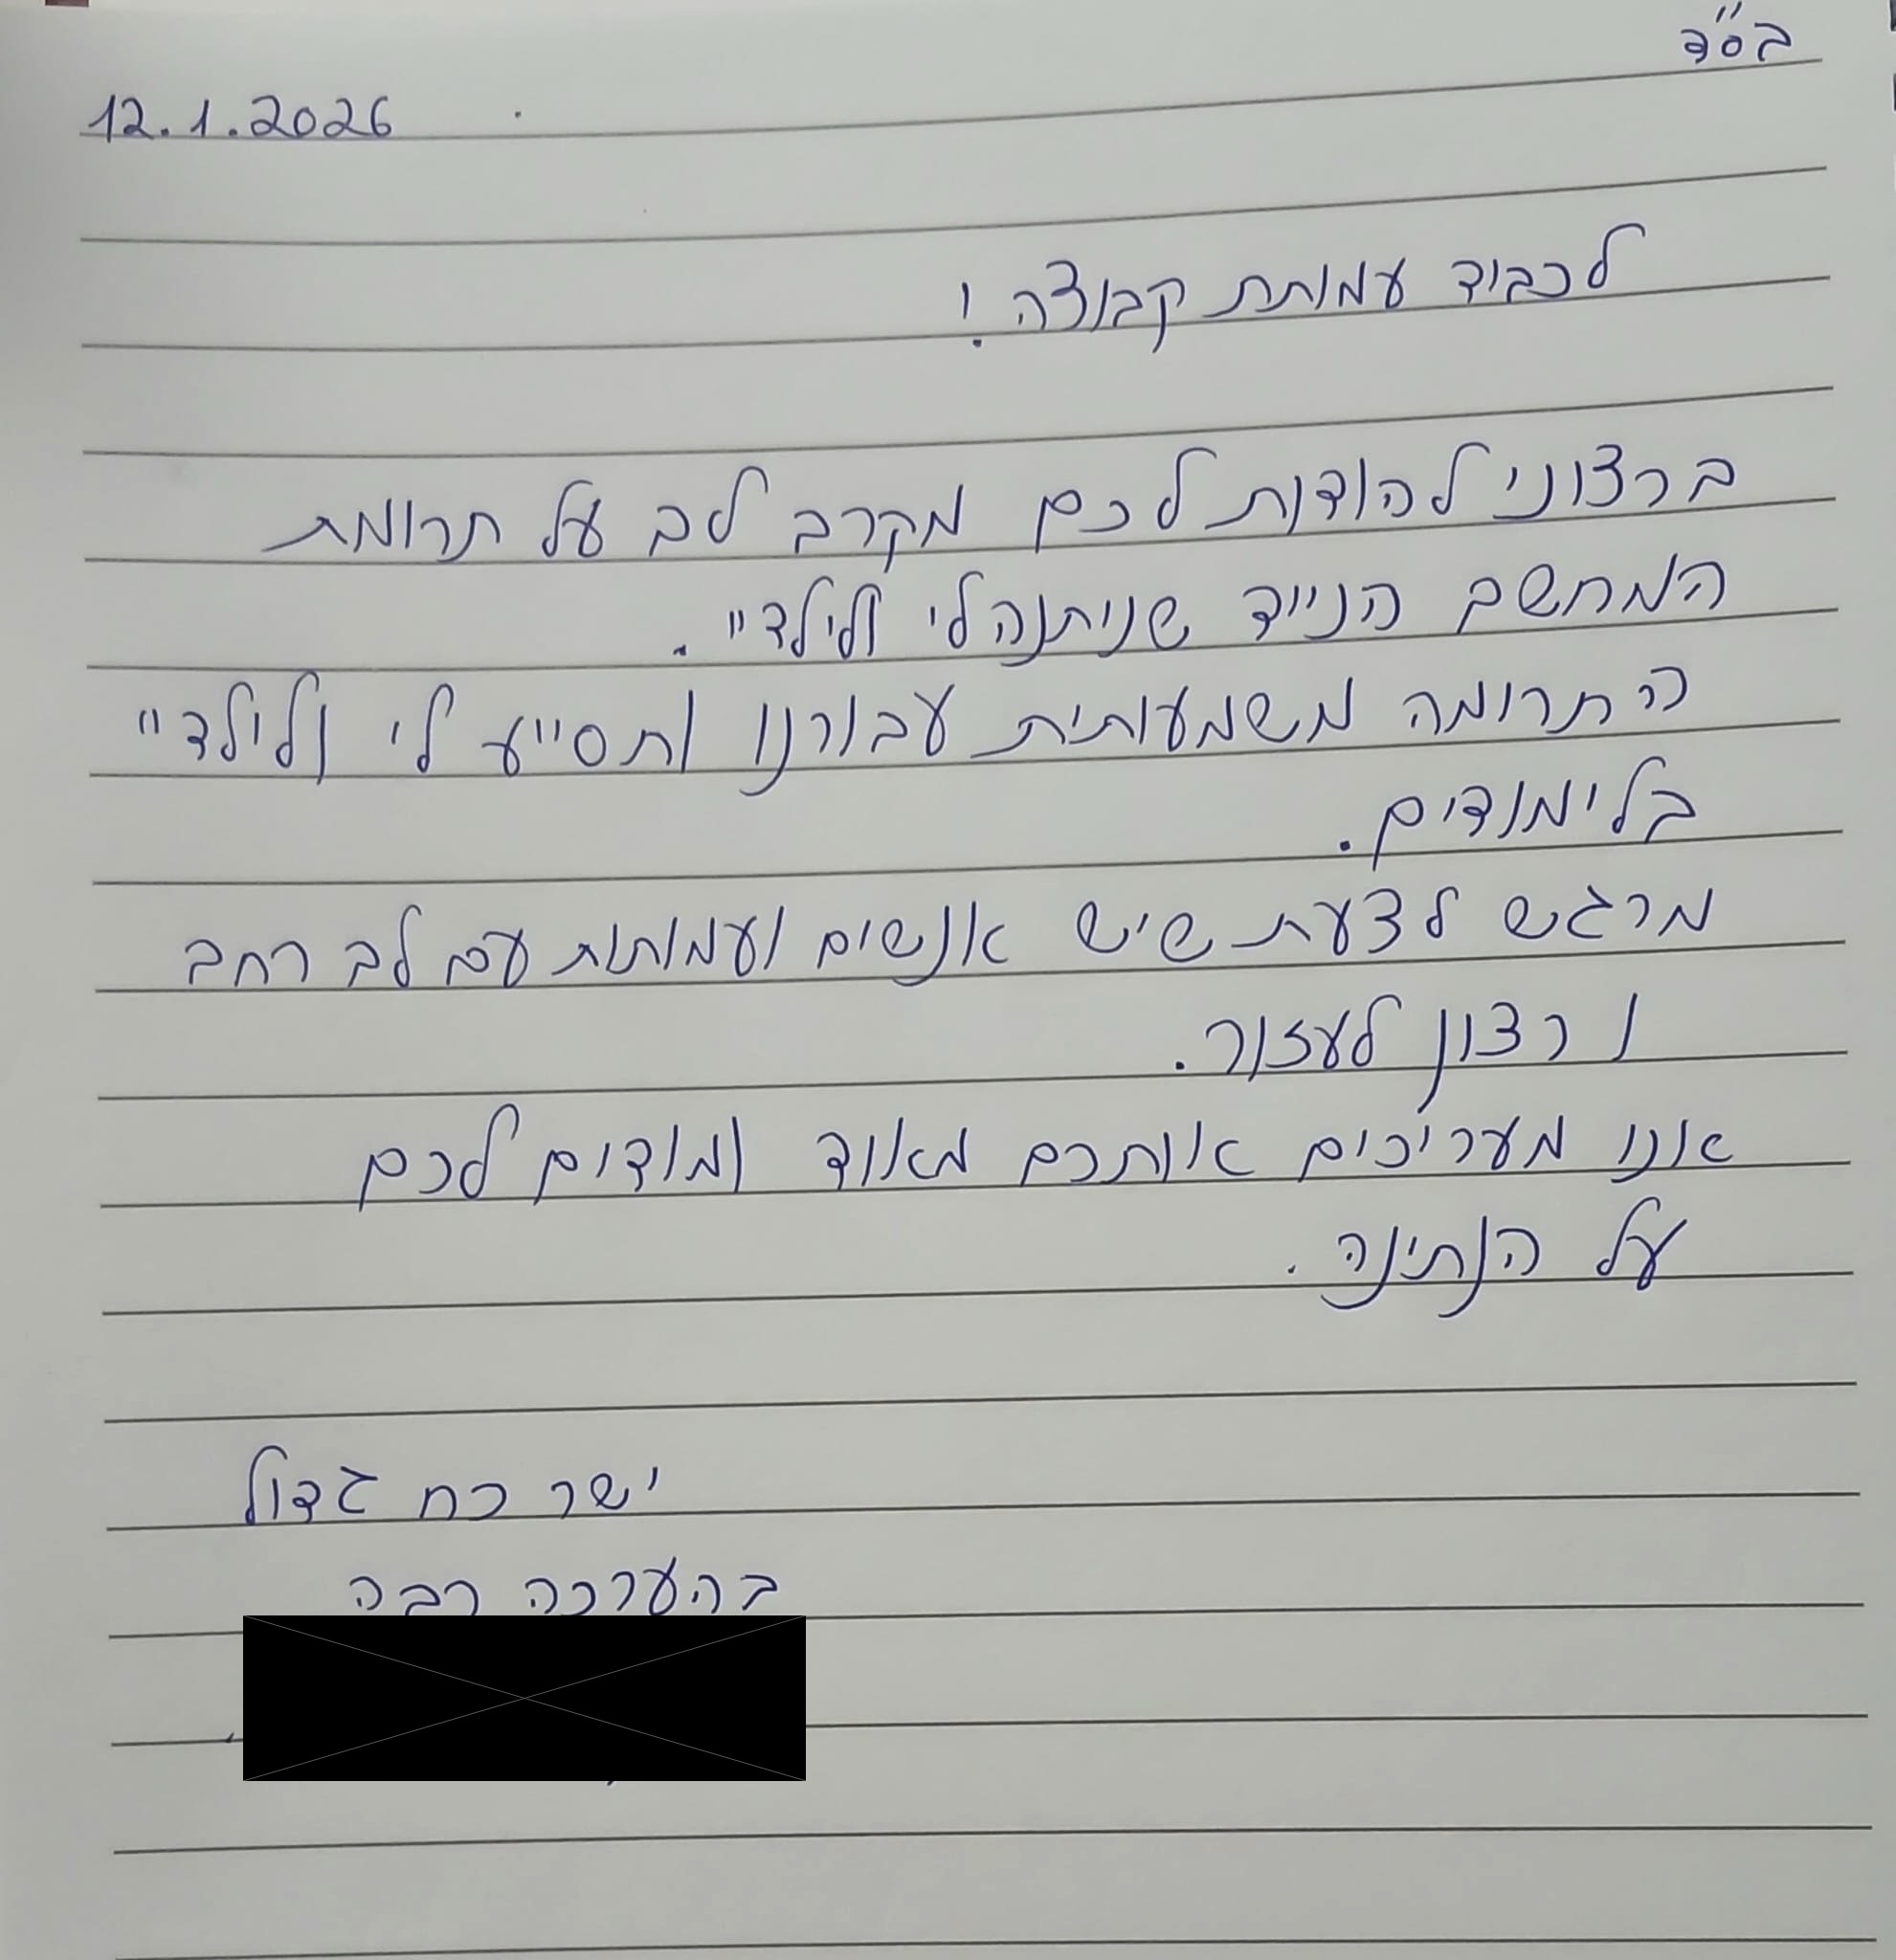 בס"ד
12.1.2026
לכבוד עמותת קבוצה !
ברצוני להודות לכם מקרב לב על תרומת
המחשב הנייד שניתנה לי ולילדיי .
התרומה משמעותית עבורנו ותסייע לי ולילדיי
בלימודים .
מרגש לדעת שיש אנשים ועמותות עם לב רחב
ורצון לעזור .
אנו מעריכים אותכם מאוד ומודים לכם
על הנתינה .
ישר כח גדול
בהערכה רבה